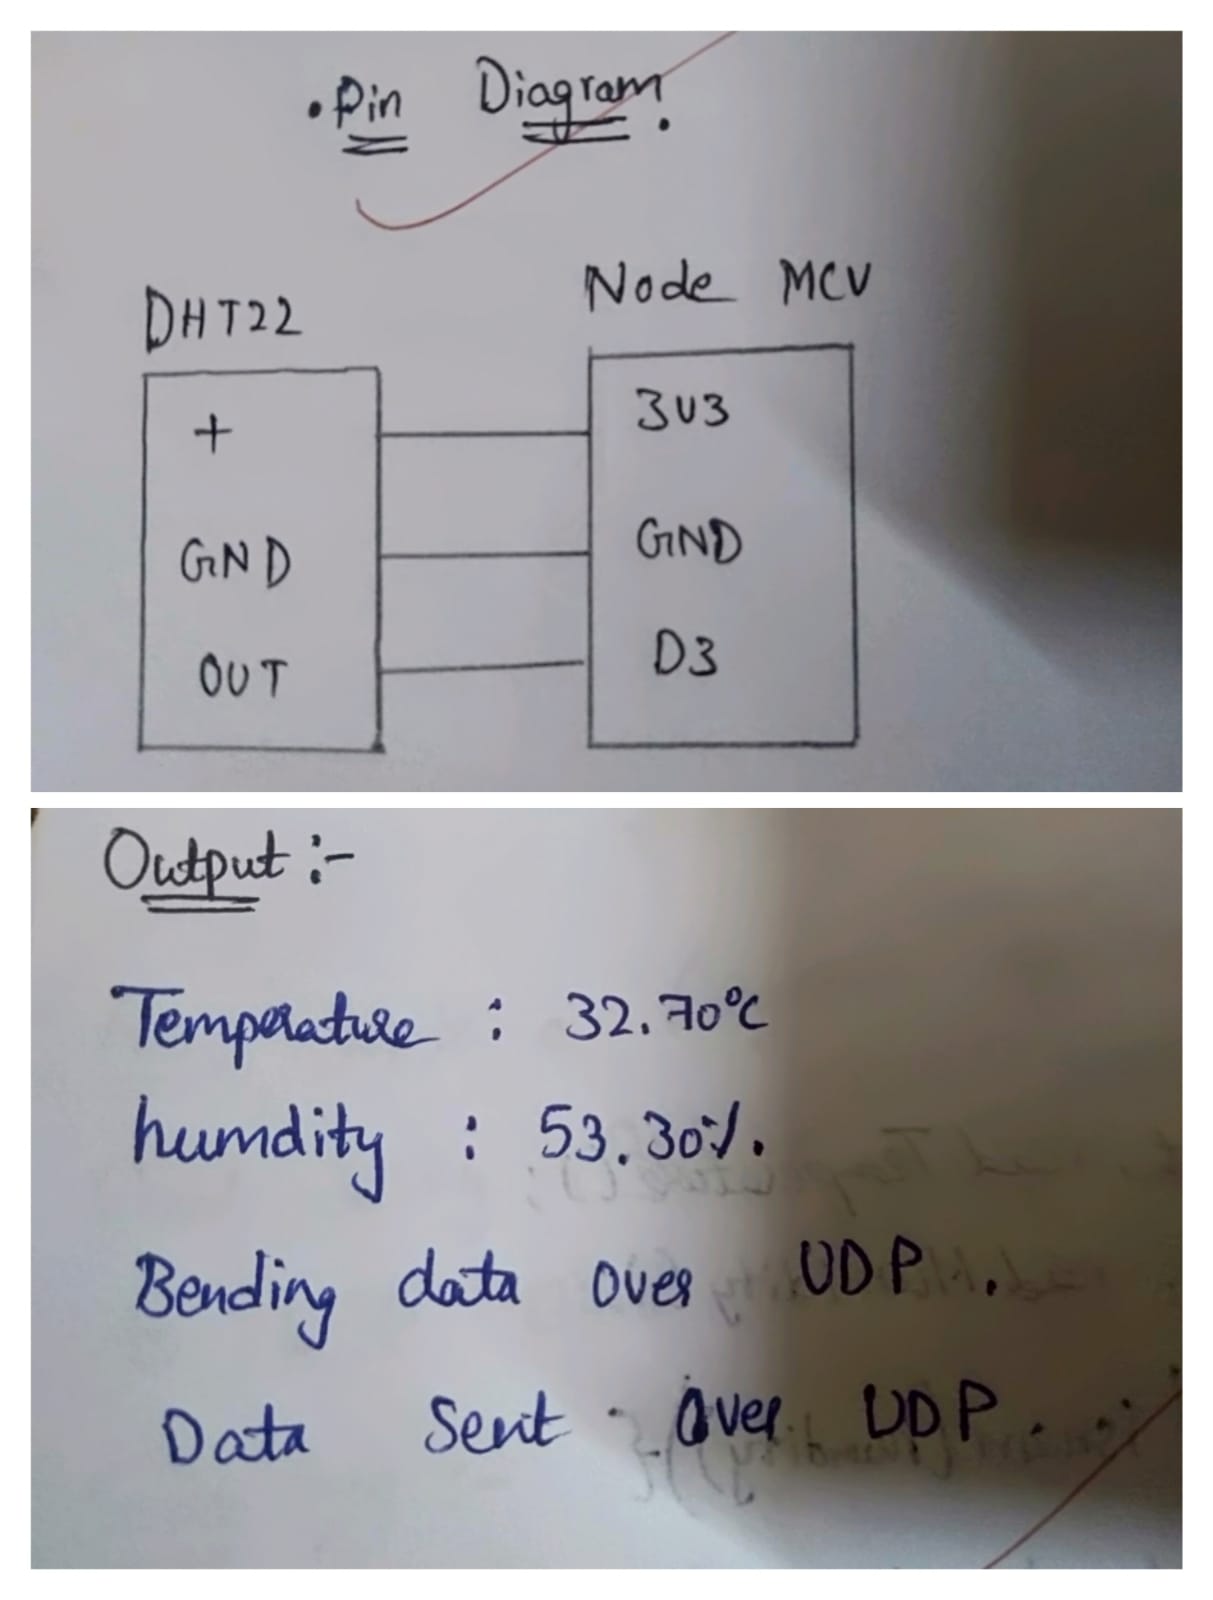 . Pin Diagram.
DHT22 Node MCU
+ 3V3
GND GND
OUT D3
Output :-
Temperature : 32.70°C
humdity : 53.30%.
Bending data over UDP.
Data Sent over UDP.